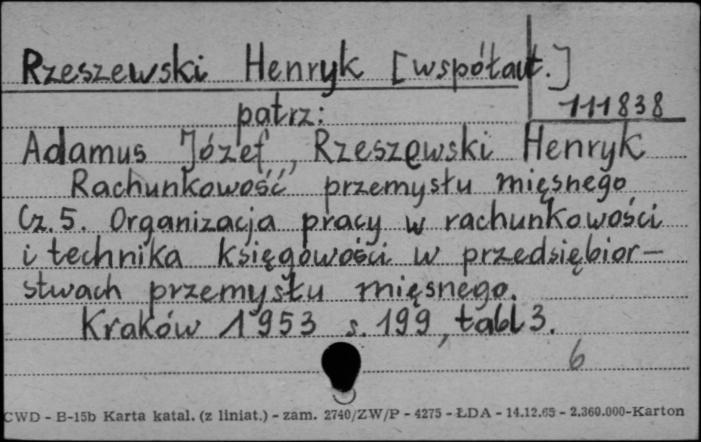 Rzeszewski Henryk [współaut.]
patrz: 111838
Adamus Józef, Rzeszewski Henryk
Rachunkowość przemysłu mięsnego
Cz. 5. Organizacja pracy w rachunkowości
i technika księgowości w przedsiębior-
stwach przemysłu mięsnego.
Kraków 1953 s. 199, tabl 3.
6
CWD - B-15b Karta katal. (z liniat.) - zam. 2740/ZW/P - 4275 - ŁDA - 14.12.65 - 2.360.000-Karton